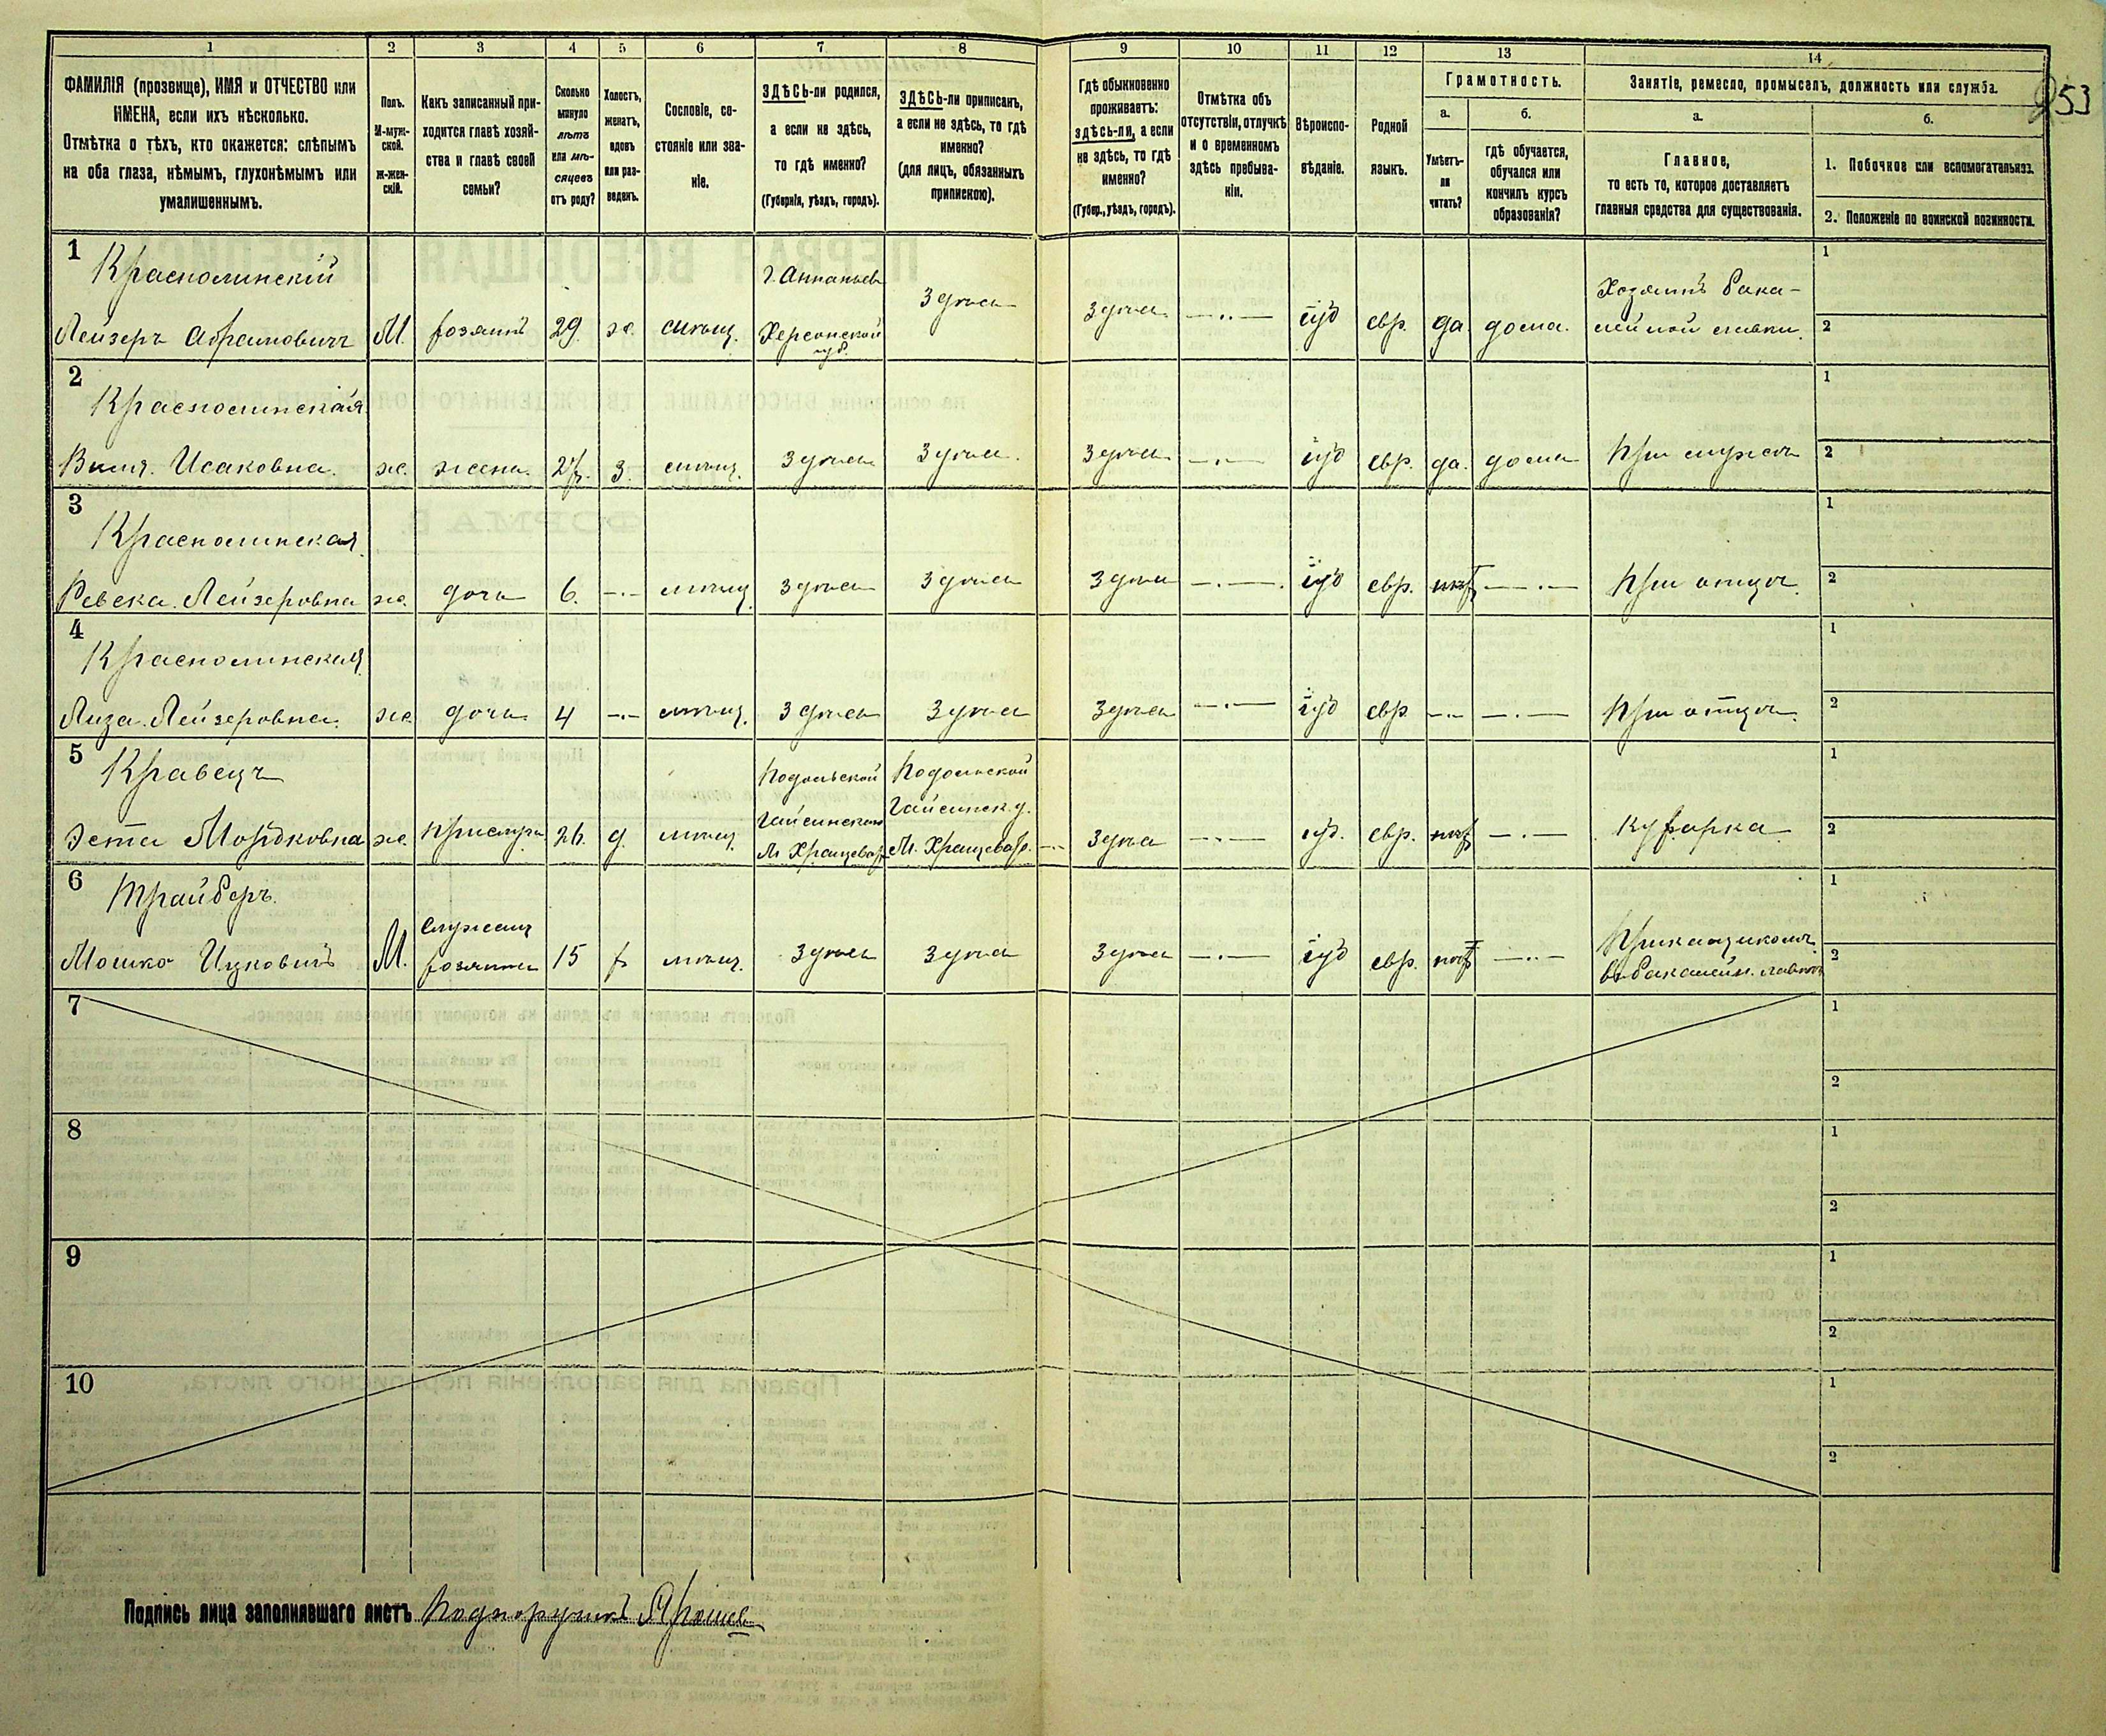 1 2 3 4 5 6 7 8 9 10 11 12 13 14
253
ФАМИЛІЯ (прозвище), ИМЯ и ОТЧЕСТВО или
ИМЕНА, если ихъ нѣсколько.
Отмѣтка о тѣхъ, кто окажется: слѣпымъ
на оба глаза, нѣмымъ, глухонѣмымъ или
умалишеннымъ.
Полъ.
М-муж-
ской.
Ж-жен-
скій.
Какъ записанный при-
ходится главѣ хозяй-
ства и главѣ своей
семьи?
Сколько
минуло
лѣтъ
или мѣ-
сяцевъ
отъ роду?
Холостъ,
женатъ,
вдовъ
или раз-
веденъ.
Сословіе, со-
стояніе или зва-
ніе.
ЗДѢСЬ-ли родился,
а если не здѣсь,
то гдѣ именно?
(Губернія, уѣздъ, городъ).
ЗДѢСЬ-ли приписанъ,
а если не здѣсь, то гдѣ
именно?
(для лицъ, обязанныхъ
припискою).
Гдѣ обыкновенно
проживаетъ:
здѣсь-ли, а если
не здѣсь, то гдѣ
именно?
(Губер., уѣздъ, городъ).
Отмѣтка объ
отсутствіи, отлучкѣ
и о временномъ
здѣсь пребыва-
ніи.
Вѣроиспо-
вѣданіе.
Родной
языкъ.
Грамотность.
а.
Умѣетъ-
ли
читать?
б.
гдѣ обучается,
обучался или
кончилъ курсъ
образованія?
Занятіе, ремесло, промыселъ, должность или служба.
а.
Главное,
то есть то, которое доставляетъ
главныя средства для существованія.
б.
1. Побочное или вспомогательное.
2. Положеніе по воинской повинности.
1
Краснолинскій
Лейзеръ Абрамовичъ М. хозяинъ 29 ж. мѣщ.
г. Ананьевъ
Херсонской
губ.
Здѣсь Здѣсь іуд евр. да дома.
Хозяинъ бака-
лейной лавки.
1
2
2
Краснолинская
Исаковна. ж. жена 27. з. мѣщ. Здѣсь Здѣсь Здѣсь іуд евр. да. дома При мужѣ
1
2
3
Краснолинская
Ревека Лейзеровна ж. дочь 6. мѣщ. Здѣсь Здѣсь Здѣсь іуд евр. нѣт При отцѣ.
1
2
4
Краснолинская
Лиза Лейзеровна. ж. дочь 4 мѣщ. Здѣсь Здѣсь Здѣсь іуд евр. При отцѣ.
1
2
5
Кравецъ
Эста Мордковна ж. прислуга 26. д. мѣщ.
Подольской
Гайсинскаго
Подольской
Гайсинск. у.
Здѣсь іуд. евр. нѣт кухарка
1
2
6
Трайберъ.
Мошко Ицковичъ М.
служащ
хозяина
15 х мѣщ. Здѣсь Здѣсь Здѣсь іуд евр. нѣт
Прикащикомъ
въ бакалейн. лавкѣ
1
2
7
1
2
8
1
2
9
1
2
10
1
2
Подпись лица заполнявшаго листъ Подпоручикъ